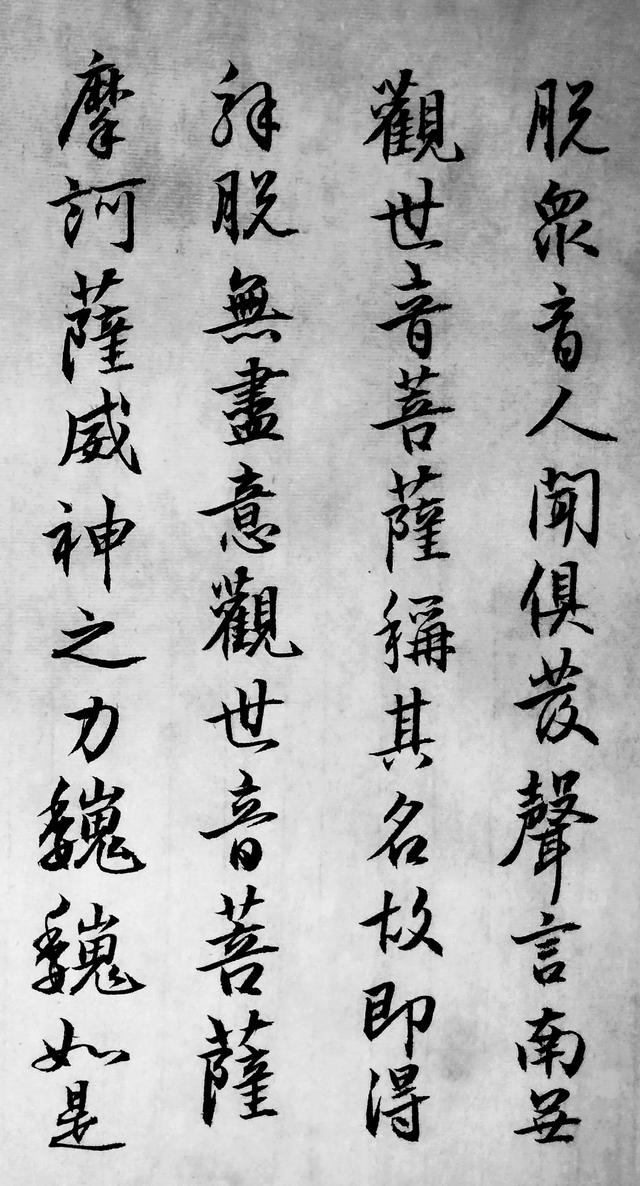 脱眾商人聞俱發聲言南無
觀世音菩薩稱其名故即得
解脱無盡意觀世音菩薩
摩訶薩威神之力巍巍如是